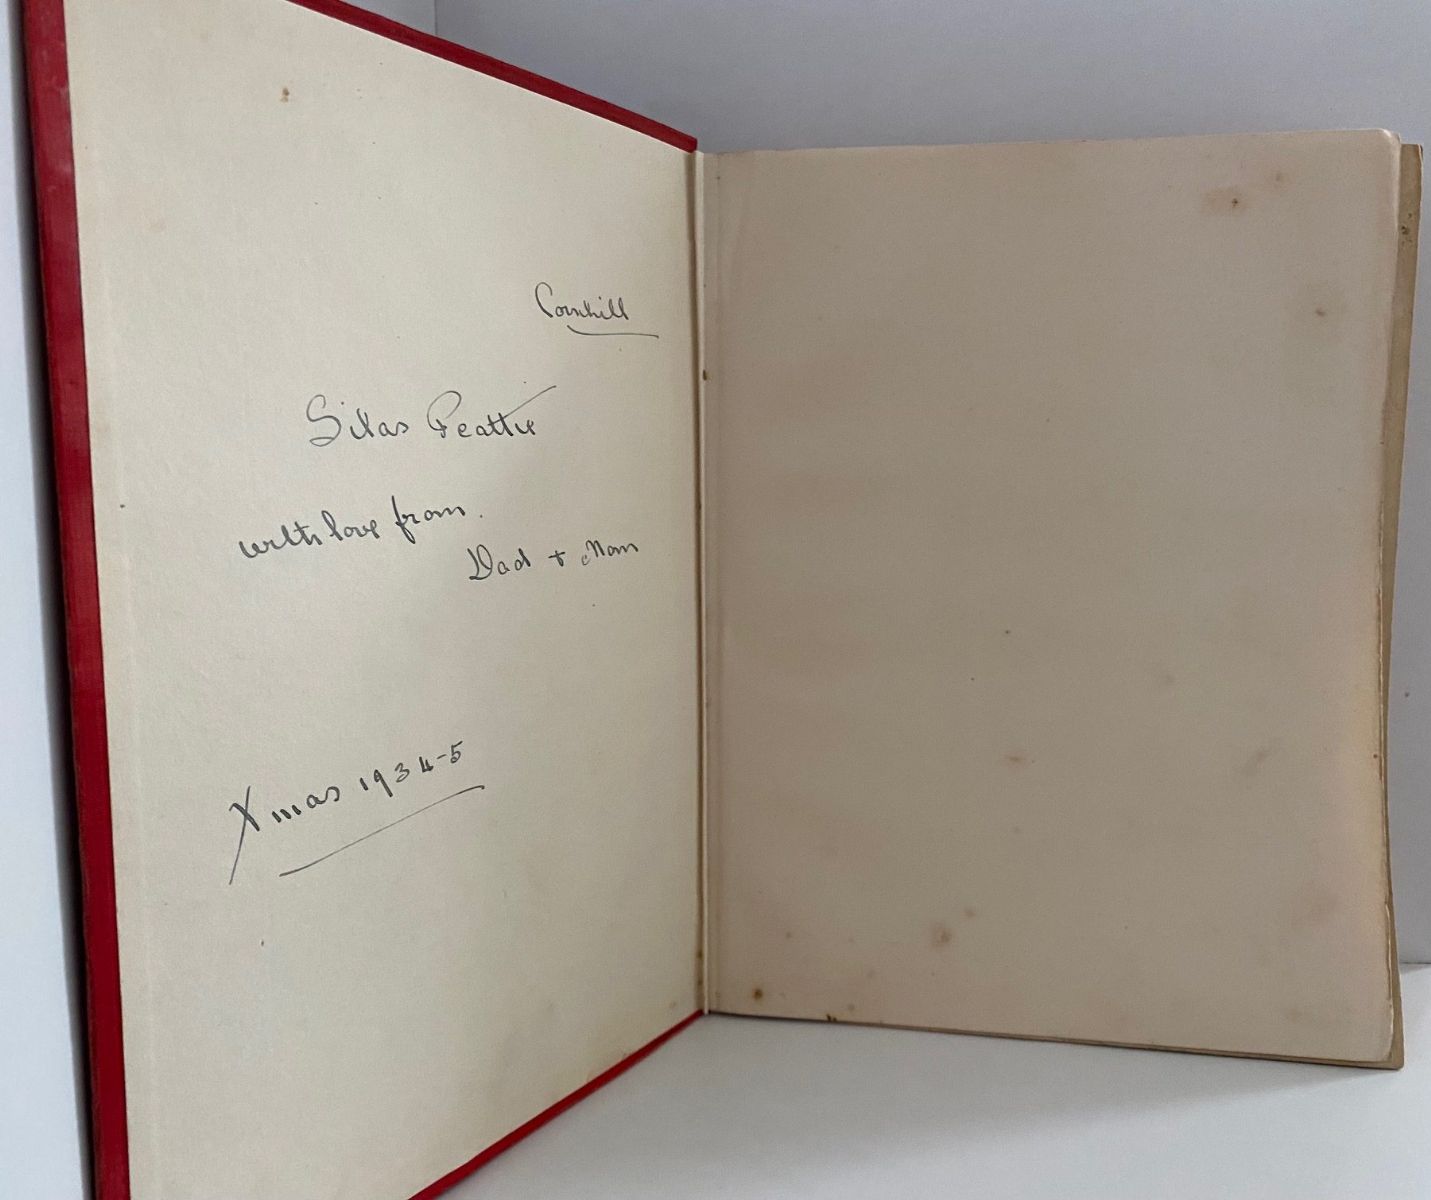 Cornhill
Silas Peattie
with love from.
Dad + Mom
Xmas 1934-5